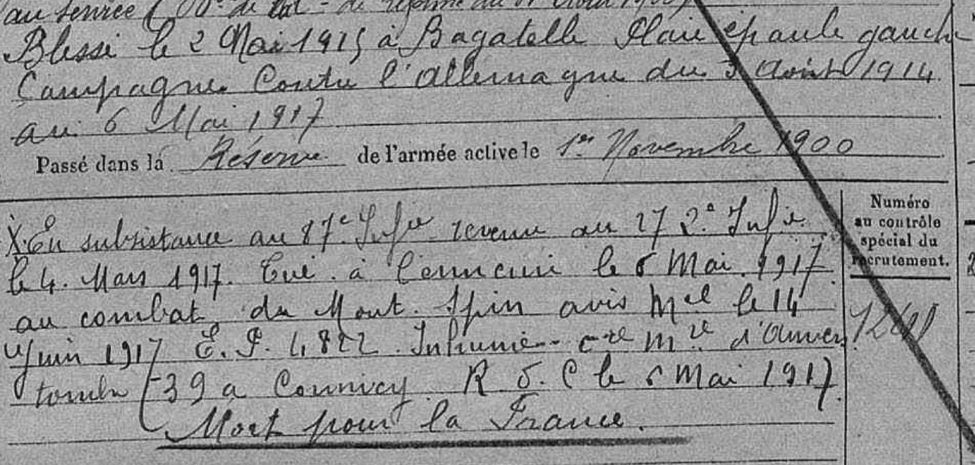 au service (
Blessé le 2 Mai 1915 à Bagatelle Plaie épaule gauche
Campagne Contre l'Allemagne du 3 Août 1914
au 6 Mai 1917
Passé dans la Réserve de l'armée active le 1er Novembre 1900
Numéro
au contrôle
spécial du
recrutement.
X En subsistance au 87e Infie revenu au 272e Infie
le 4 Mars 1917. Tué à l'ennemi le 6 Mai 1917
au combat du Mont Spin avis Mel le 14
Juin 1917 E. P. 4822 Inhumé cre Mre
tombe 39 a Cormicy R δ. C le 6 Mai 1917
Mort pour la France.